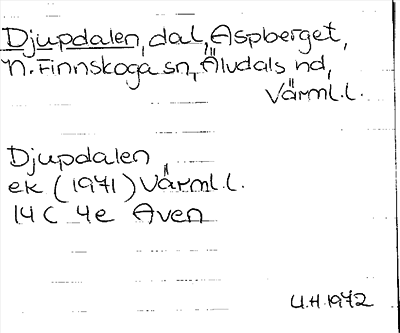 Djupdalen, dal, Aspberget,
N. Finnskoga sn, Äludals hd,
Värml. l.
Djupdalen
ek (1971) Värml. l.
14 C 4e Aven
U.H. 1972